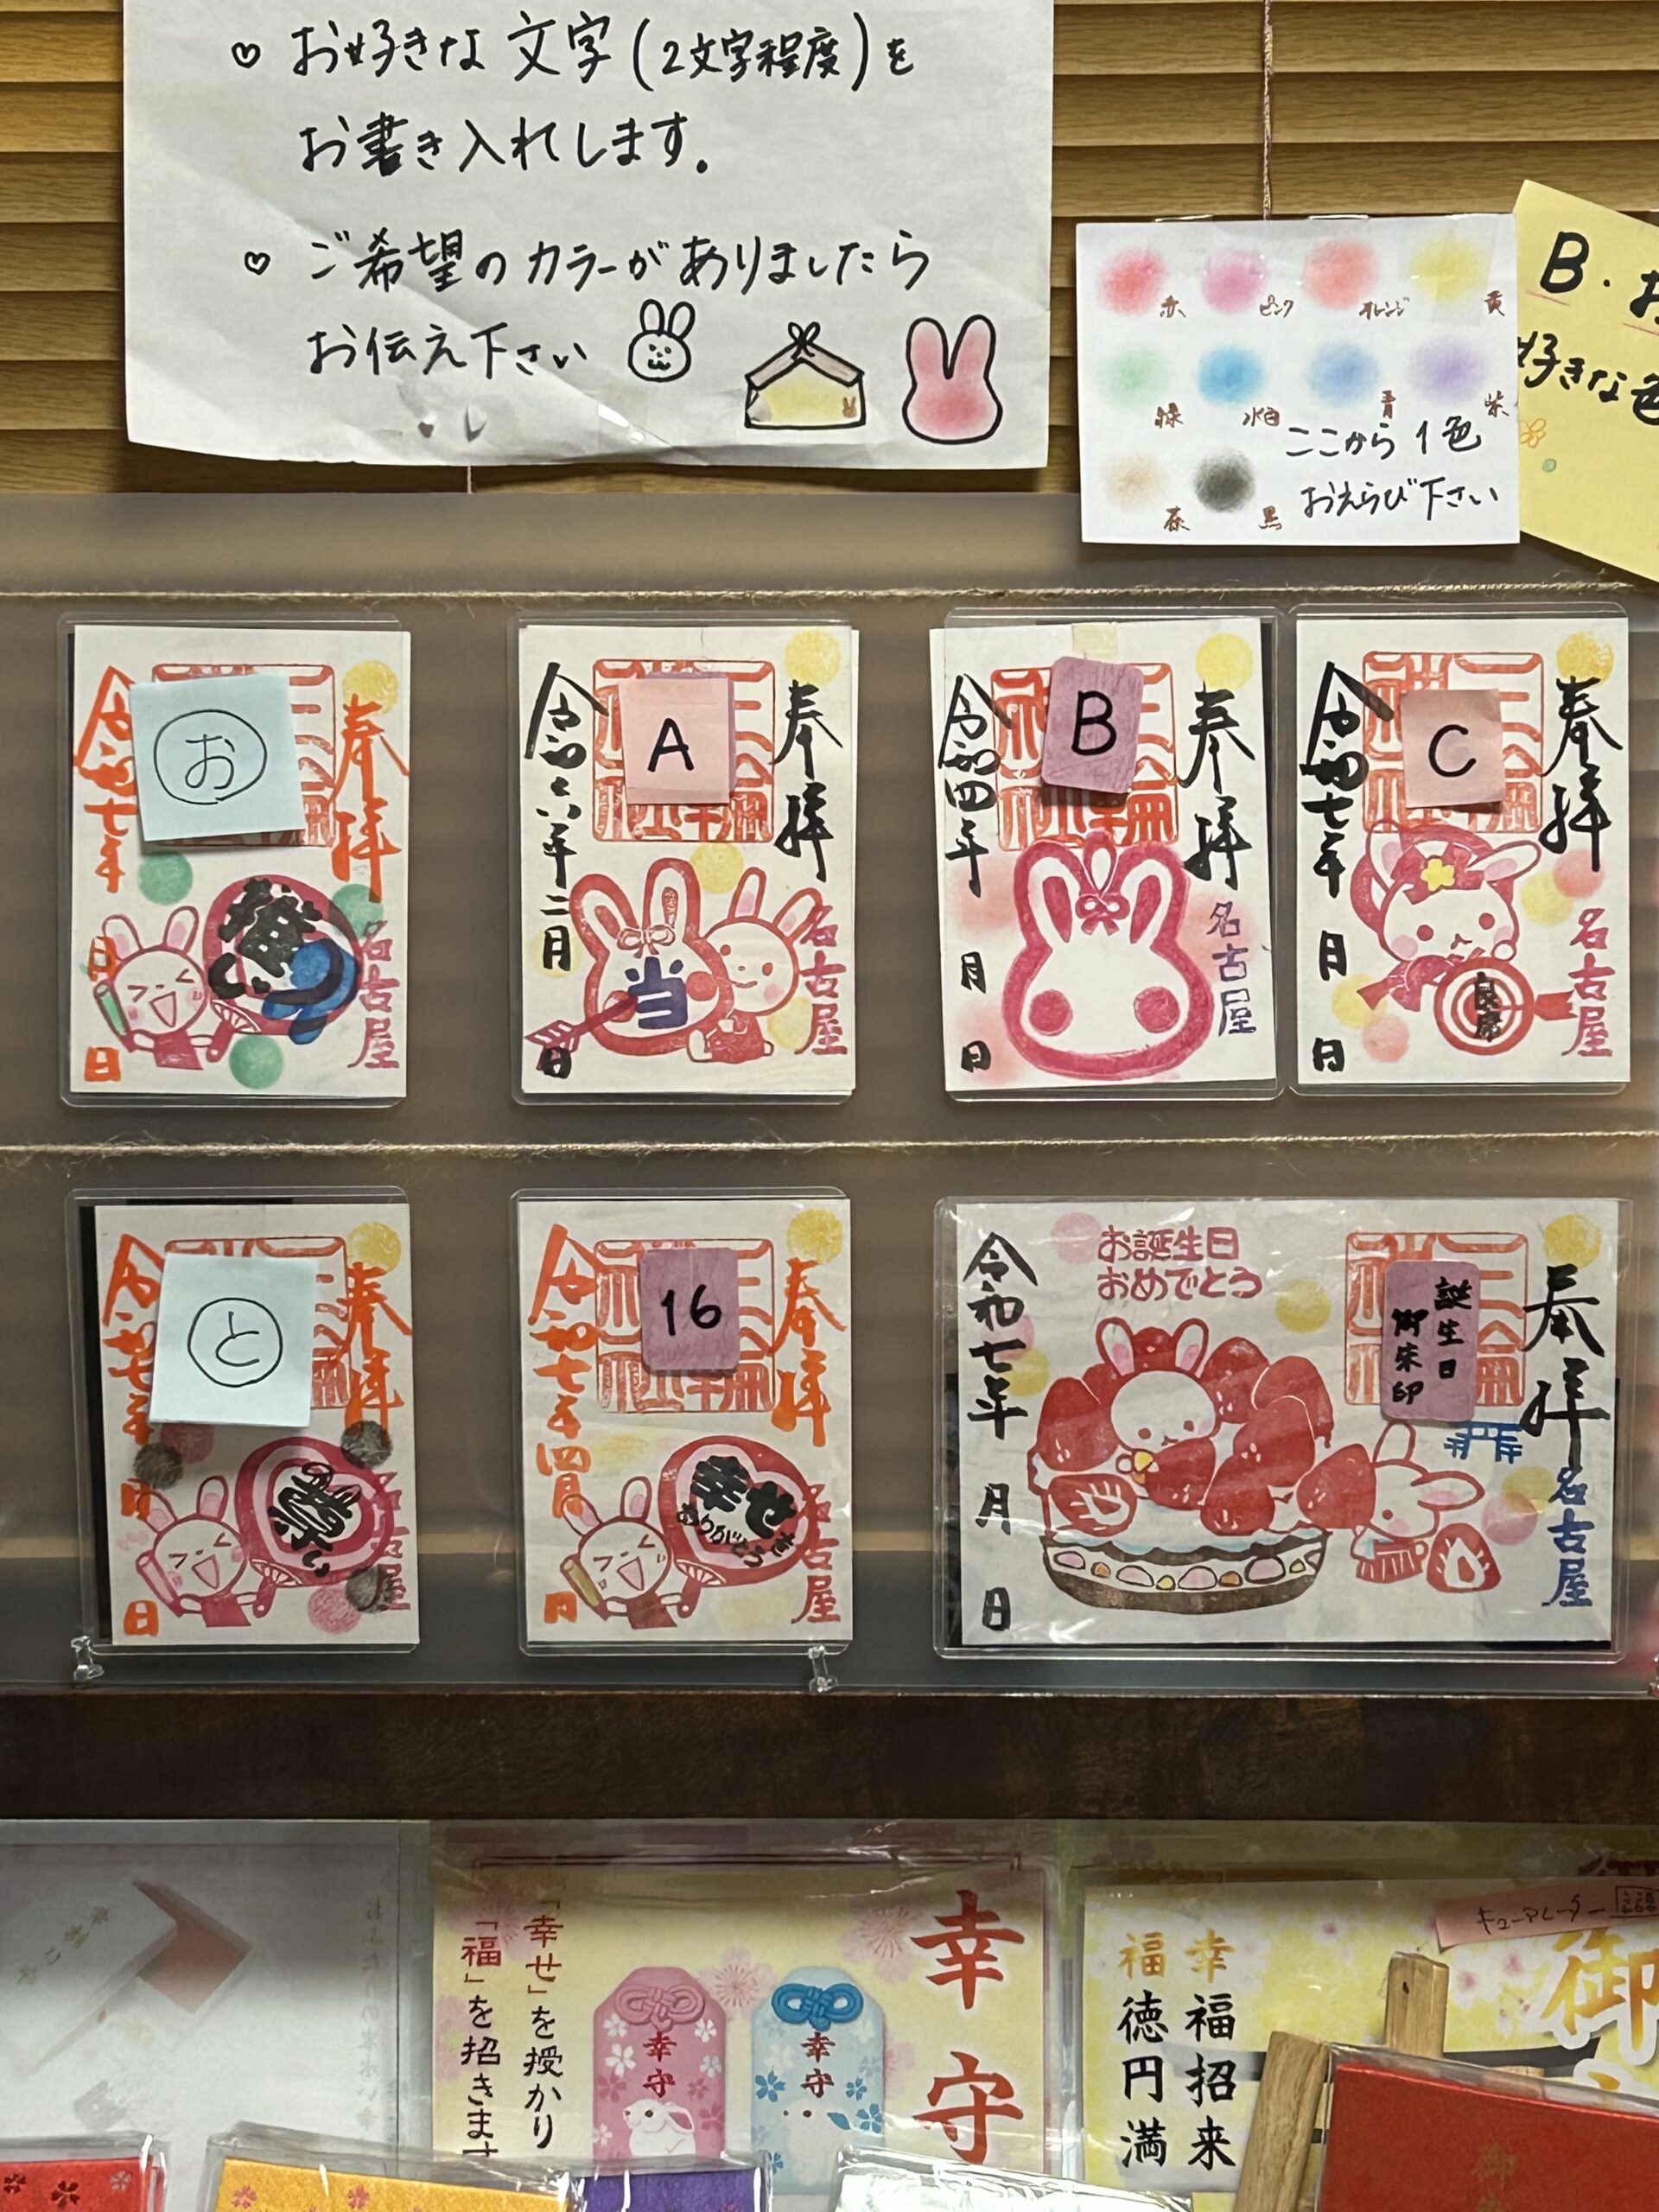 ♡ お好きな文字(2文字程度)を
お書き入れします。
♡ ご希望のカラーがありましたら
お伝え下さい
赤 ピンク オレンジ 黄
緑 水色 青 紫
茶 黒
ここから1色
おえらび下さい
B.お
好きな色
お
奉拝
令和七年
日
名古屋
A
奉拝
令和六年二月
日
当
名古屋
B
奉拝
令和四年
月
日
名古屋
C
奉拝
令和七年
月
日
名古屋
と
奉拝
令和七年
月
日
16
奉拝
令和七年四月
日
幸せを
ありがとう
名古屋
お誕生日
おめでとう
誕生日
御朱印
奉拝
令和七年
月
日
名古屋
幸守
「幸せ」を授かり
「福」を招きます
幸守
幸守
御
幸福招来
福徳円満